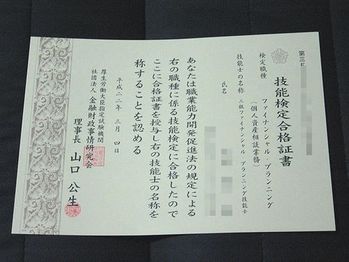 技能検定合格証書
検定職種
ファイナンシャル プランニング
(個人資産相談業務)
技能士の名称
三級ファイナンシャル プランニング技能士
氏名
あなたは職業能力開発促進法の規定による
右の職種に係る技能検定に合格したので
ここに合格証書を授与し右の技能士の名称を
称することを認める
平成二二年 三月 四日
厚生労働大臣指定試験機関
社団法人 金融財政事情研究会
理事長 山口 公生